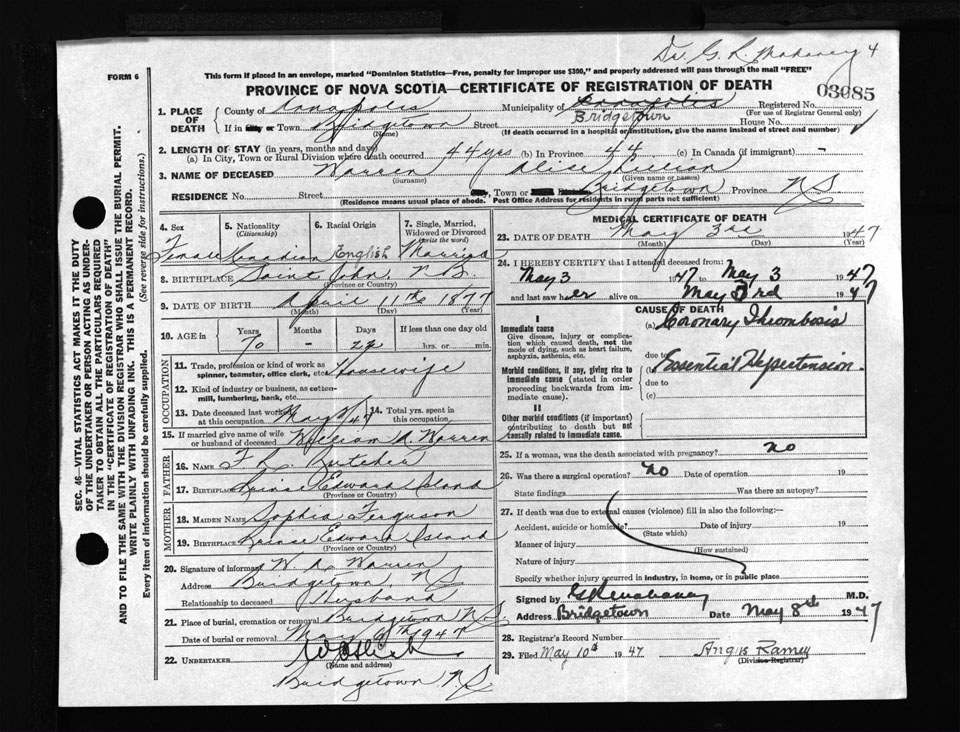 Dr. G. R. Mahaney 4
FORM 6
This form if placed in an envelope, marked "Dominion Statistics—Free, penalty for improper use $300," and properly addressed will pass through the mail "FREE"
PROVINCE OF NOVA SCOTIA—CERTIFICATE OF REGISTRATION OF DEATH
03085
1. PLACE OF DEATH
County of Annapolis Municipality of Annapolis Registered No.
(For use of Registrar General only)
If in City or Town Bridgetown Street Bridgetown House No.
(Name) (If death occurred in a hospital or institution, give the name instead of street and number)
2. LENGTH OF STAY (in years, months and days)
(a) In City, Town or Rural Division where death occurred 44 yrs (b) In Province 44 (c) In Canada (if immigrant) -
3. NAME OF DECEASED Warren Alice Lillian
(Surname) (Given name or names)
RESIDENCE No. Street Town or Bridgetown Province N S
(Residence means usual place of abode. Post Office Address for residents in rural parts not sufficient)
4. Sex Female
5. Nationality (Citizenship) Canadian
6. Racial Origin English
7. Single, Married, Widowed or Divorced (write the word) Married
8. BIRTHPLACE Saint John, N. B.
(Province or Country)
9. DATE OF BIRTH April 11th 1877
(Month) (Day) (Year)
10. AGE in Years Months Days If less than one day old
70 - 22 hrs. or min.
OCCUPATION
11. Trade, profession or kind of work as spinner, teamster, office clerk, etc. Housewife
12. Kind of industry or business, as cotton-mill, lumbering, bank, etc.
13. Date deceased last worked at this occupation May /47 14. Total yrs. spent in this occupation
15. If married give name of wife or husband of deceased William A. Warren
FATHER
16. NAME
17. BIRTHPLACE Prince Edward Island
(Province or Country)
MOTHER
18. MAIDEN NAME Sophia Ferguson
19. BIRTHPLACE Prince Edward Island
(Province or Country)
20. Signature of informant W. A. Warren
Address Bridgetown, N S
Relationship to deceased Husband
21. Place of burial, cremation or removal Bridgetown N.S.
Date of burial or removal May 1947
22. UNDERTAKER
(Name and address)
Bridgetown N.S.
MEDICAL CERTIFICATE OF DEATH
23. DATE OF DEATH May 3rd 1947
(Month) (Day) (Year)
24. I HEREBY CERTIFY that I attended deceased from:
May 3 1947 to May 3 1947
and last saw her alive on May 3rd 1947
CAUSE OF DEATH
I
Immediate cause
Give disease, injury or complication which caused death, not the mode of dying, such as heart failure, asphyxia, asthenia, etc.
(a) Coronary Thrombosis
due to
Morbid conditions, if any, giving rise to immediate cause (stated in order proceeding backwards from immediate cause).
Essential Hypertension
due to
(c)
II
Other morbid conditions (if important) contributing to death but not causally related to immediate cause.
25. If a woman, was the death associated with pregnancy? no
26. Was there a surgical operation? no Date of operation 19
State findings Was there an autopsy?
27. If death was due to external causes (violence) fill in also the following:—
Accident, suicide or homicide? Date of injury 19
(State which)
Manner of injury
(How sustained)
Nature of injury
Specify whether injury occurred in industry, in home, or in public place
Signed by G R Mahaney M.D.
Address Bridgetown Date May 8th 1947
28. Registrar's Record Number
29. Filed May 10th 1947 Angus Ramey
(Division Registrar)
SEC. 46—VITAL STATISTICS ACT MAKES IT THE DUTY
OF THE UNDERTAKER OR PERSON ACTING AS UNDER-
TAKER TO OBTAIN ALL THE PARTICULARS REQUIRED
IN THE "CERTIFICATE OF REGISTRATION OF DEATH"
AND TO FILE THE SAME WITH THE DIVISION REGISTRAR WHO SHALL ISSUE THE BURIAL PERMIT.
WRITE PLAINLY WITH UNFADING INK. THIS IS A PERMANENT RECORD.
Every item of information should be carefully supplied. (See reverse side for instructions.)